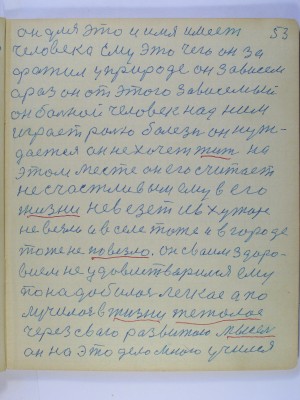 53
он для это и имя имеет
человека ему это чего он за
фатил у природе он зависем
а раз он от этого зависемый
он болной человек над ним
играет ролю болезн он нуж-
дается он не хочет жит на
этом месте он его считает
несчастливым ему в его
жизни невезет и в хутор
невезли и в селе тоже и в городе
тоже не повезло. он своим здоро-
вием не удовлитварился ему
понадобилос легкае а по
лучилос в жизни тежолае
через сваго развитою мысел
он на это дело много учился